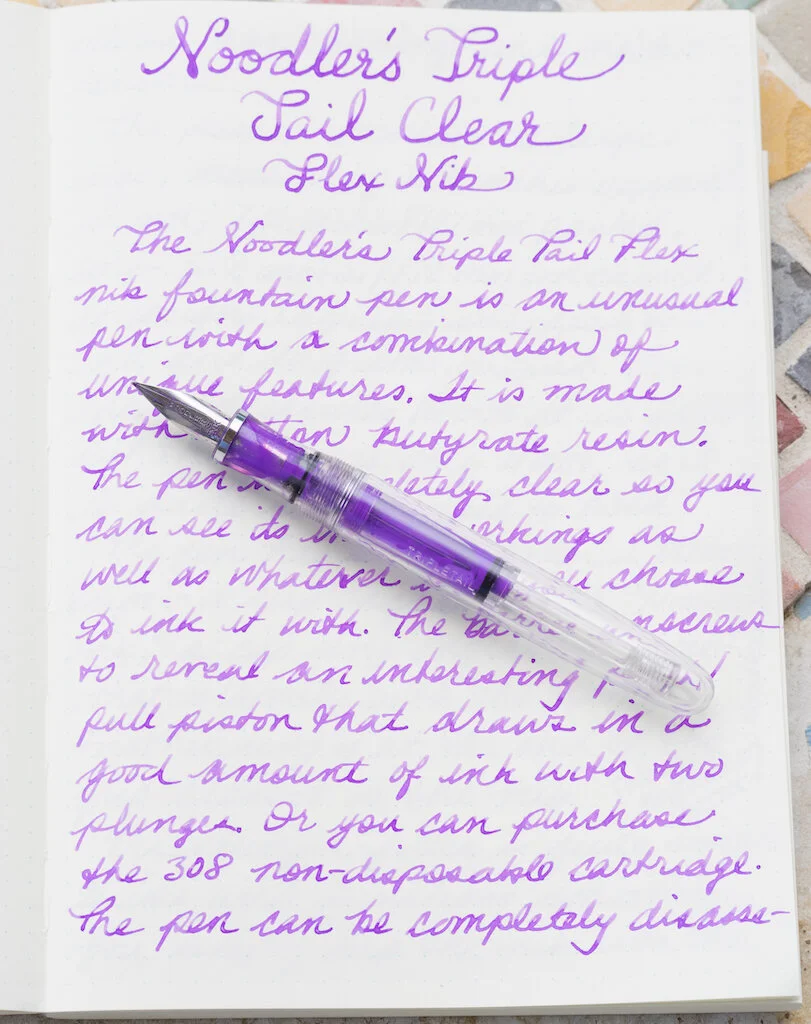 Noodler's Triple
Tail Clear
Flex Nib
The Noodler's Triple Tail Flex
nib fountain pen is an unusual
pen with a combination of
unique features. It is made
with butyrate resin.
The pen clear so you
can see its as
well as whatever you choose
to ink it with. The unscrews
to reveal an interesting
pull piston that draws in a
good amount of ink with two
plunges. Or you can purchase
the 308 non-disposable cartridge.
The pen can be completely disass-
TRIPLE TAIL